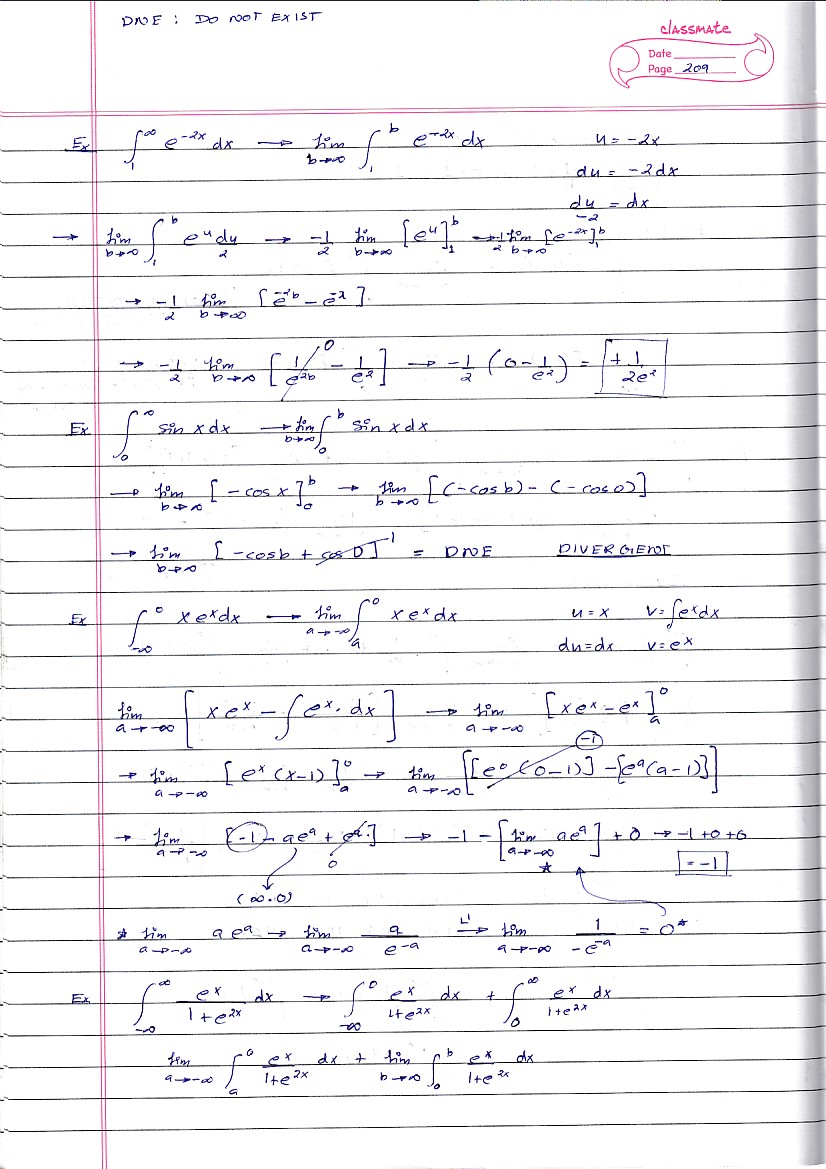 DNE : DO NOT EXIST
classmate
Date
Page 209
Ex ∫₁^∞ e^{-2x} dx → lim_{b→∞} ∫₁^b e^{-2x} dx u = -2x
du = -2dx
du/-2 = dx
→ lim_{b→∞} ∫₁^b e^u du/2 → -1/2 lim_{b→∞} [e^u]₁^b → -1/2 lim_{b→∞} [e^{-2x}]₁^b
→ -1/2 lim_{b→∞} [e^{-2b} - e^{-2}]
→ -1/2 lim_{b→∞} [1/e^{2b} 0 - 1/e²] → -1/2 (0 - 1/e²) = + 1/2e²
Ex ∫₀^∞ sin x dx → lim_{b→∞} ∫₀^b sin x dx
→ lim_{b→∞} [-cos x]₀^b → lim_{b→∞} [(-cos b) - (-cos 0)]
→ lim_{b→∞} [-cos b + cos 0] 1 = DNE DIVERGENT
Ex ∫_{-∞}^0 x e^x dx → lim_{a→-∞} ∫_a^0 x e^x dx u = x v = ∫e^x dx
du = dx v = e^x
lim_{a→-∞} [x e^x - ∫e^x · dx] → lim_{a→-∞} [x e^x - e^x]_a^0
→ lim_{a→-∞} [e^x (x-1)]_a^0 → lim_{a→-∞} [[e^0 (0-1)] - [e^a (a-1)]] -1
→ lim_{a→-∞} [-1 - ae^a + e^a] → -1 - [lim_{a→-∞} ae^a] + 0 → -1 + 0 + 0
0 * = -1
(∞·0)
* lim_{a→-∞} a e^a → lim_{a→-∞} a/e^{-a} L' → lim_{a→-∞} 1/-e^{-a} = 0*
Ex ∫_{-∞}^∞ e^x/1+e^{2x} dx → ∫_{-∞}^0 e^x/1+e^{2x} dx + ∫₀^∞ e^x/1+e^{2x} dx
lim_{a→-∞} ∫_a^0 e^x/1+e^{2x} dx + lim_{b→∞} ∫₀^b e^x/1+e^{2x} dx